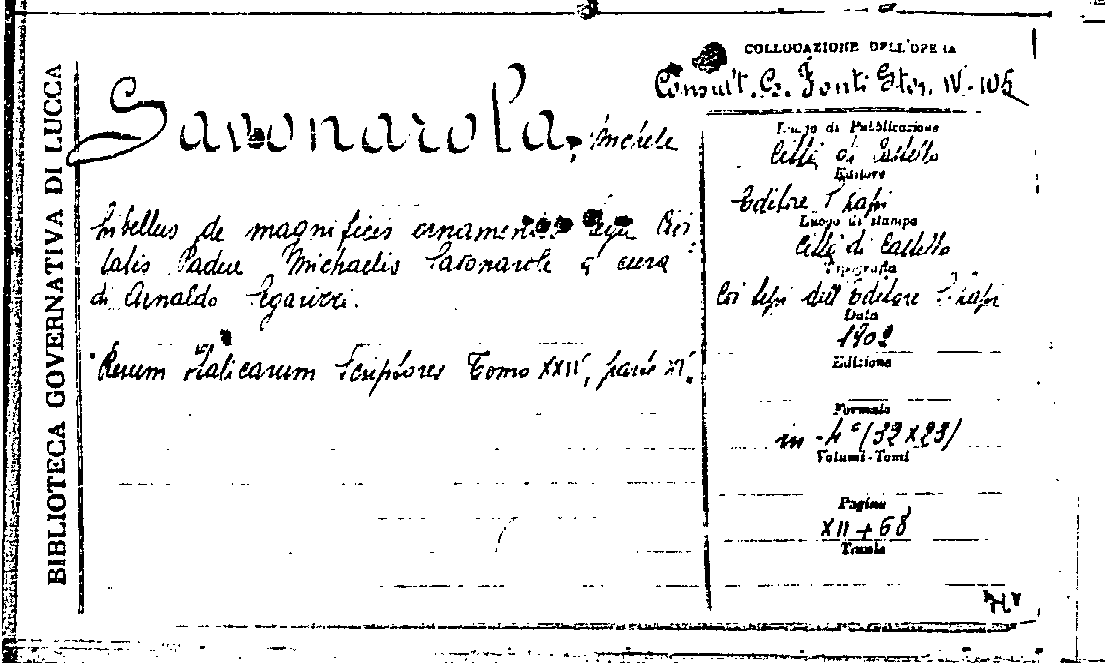 BIBLIOTECA GOVERNATIVA DI LUCCA
COLLOCAZIONE DELL'OPERA
Consult. Ca. Fonti Stor. IV-105
Savonarola, Michele
Libellus de magnificis ornamentis Regie Civi
tatis Padue Michaelis Savonarole a cura
di Arnaldo Segarizzi.
Rerum Italicarum Scriptores Tomo XXIV, parte XV.
Luogo di Pubblicazione
Città di Castello
Editore
Editore S. Lapi
Luogo di stampa
Città di Castello
Tipografia
Coi tipi dell'Editore S. Lapi
Data
1902
Edizione
Formato
in-4° (32x23)
Volumi-Tomi
Pagine
XII+68
Tavole